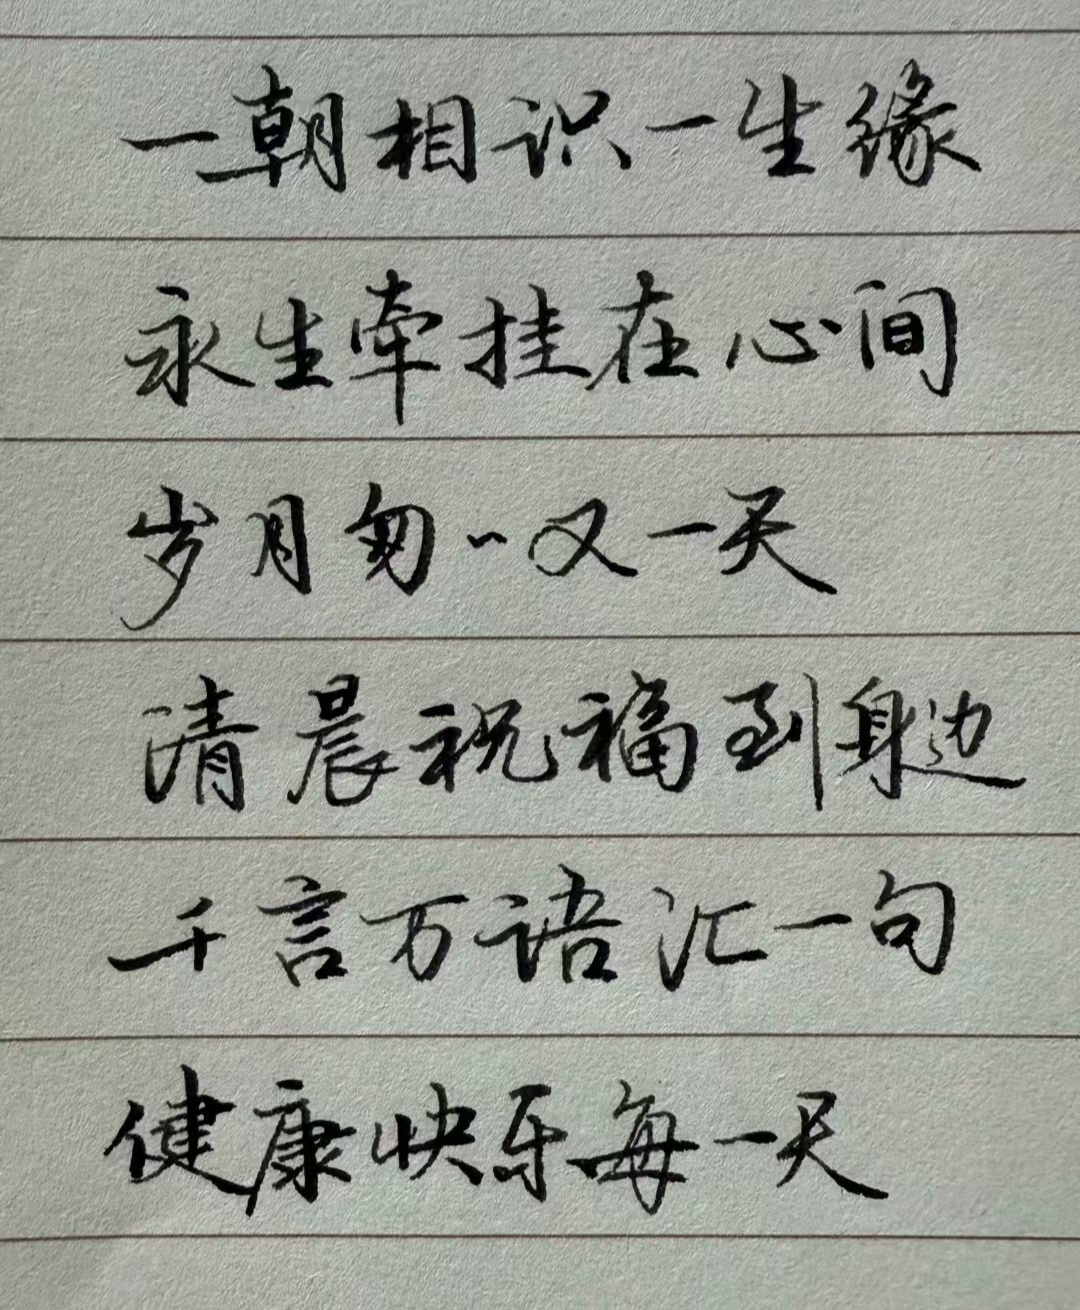 一朝相识一生缘
永生牵挂在心间
岁月匆〻又一天
清晨祝福到身边
千言万语汇一句
健康快乐每一天